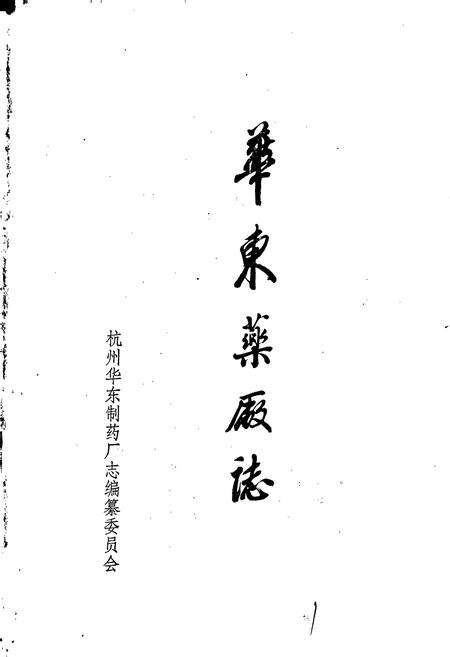 華東藥廠誌
杭州华东制药厂志编纂委员会